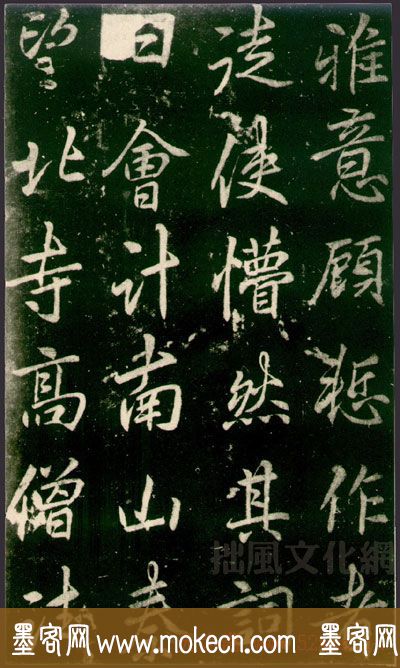 雅意顧慙作者
徒使懵然其詞
曰會計南山秦
望北寺高僧法
拙風文化網
墨客网 www.mokecn.com 墨客网